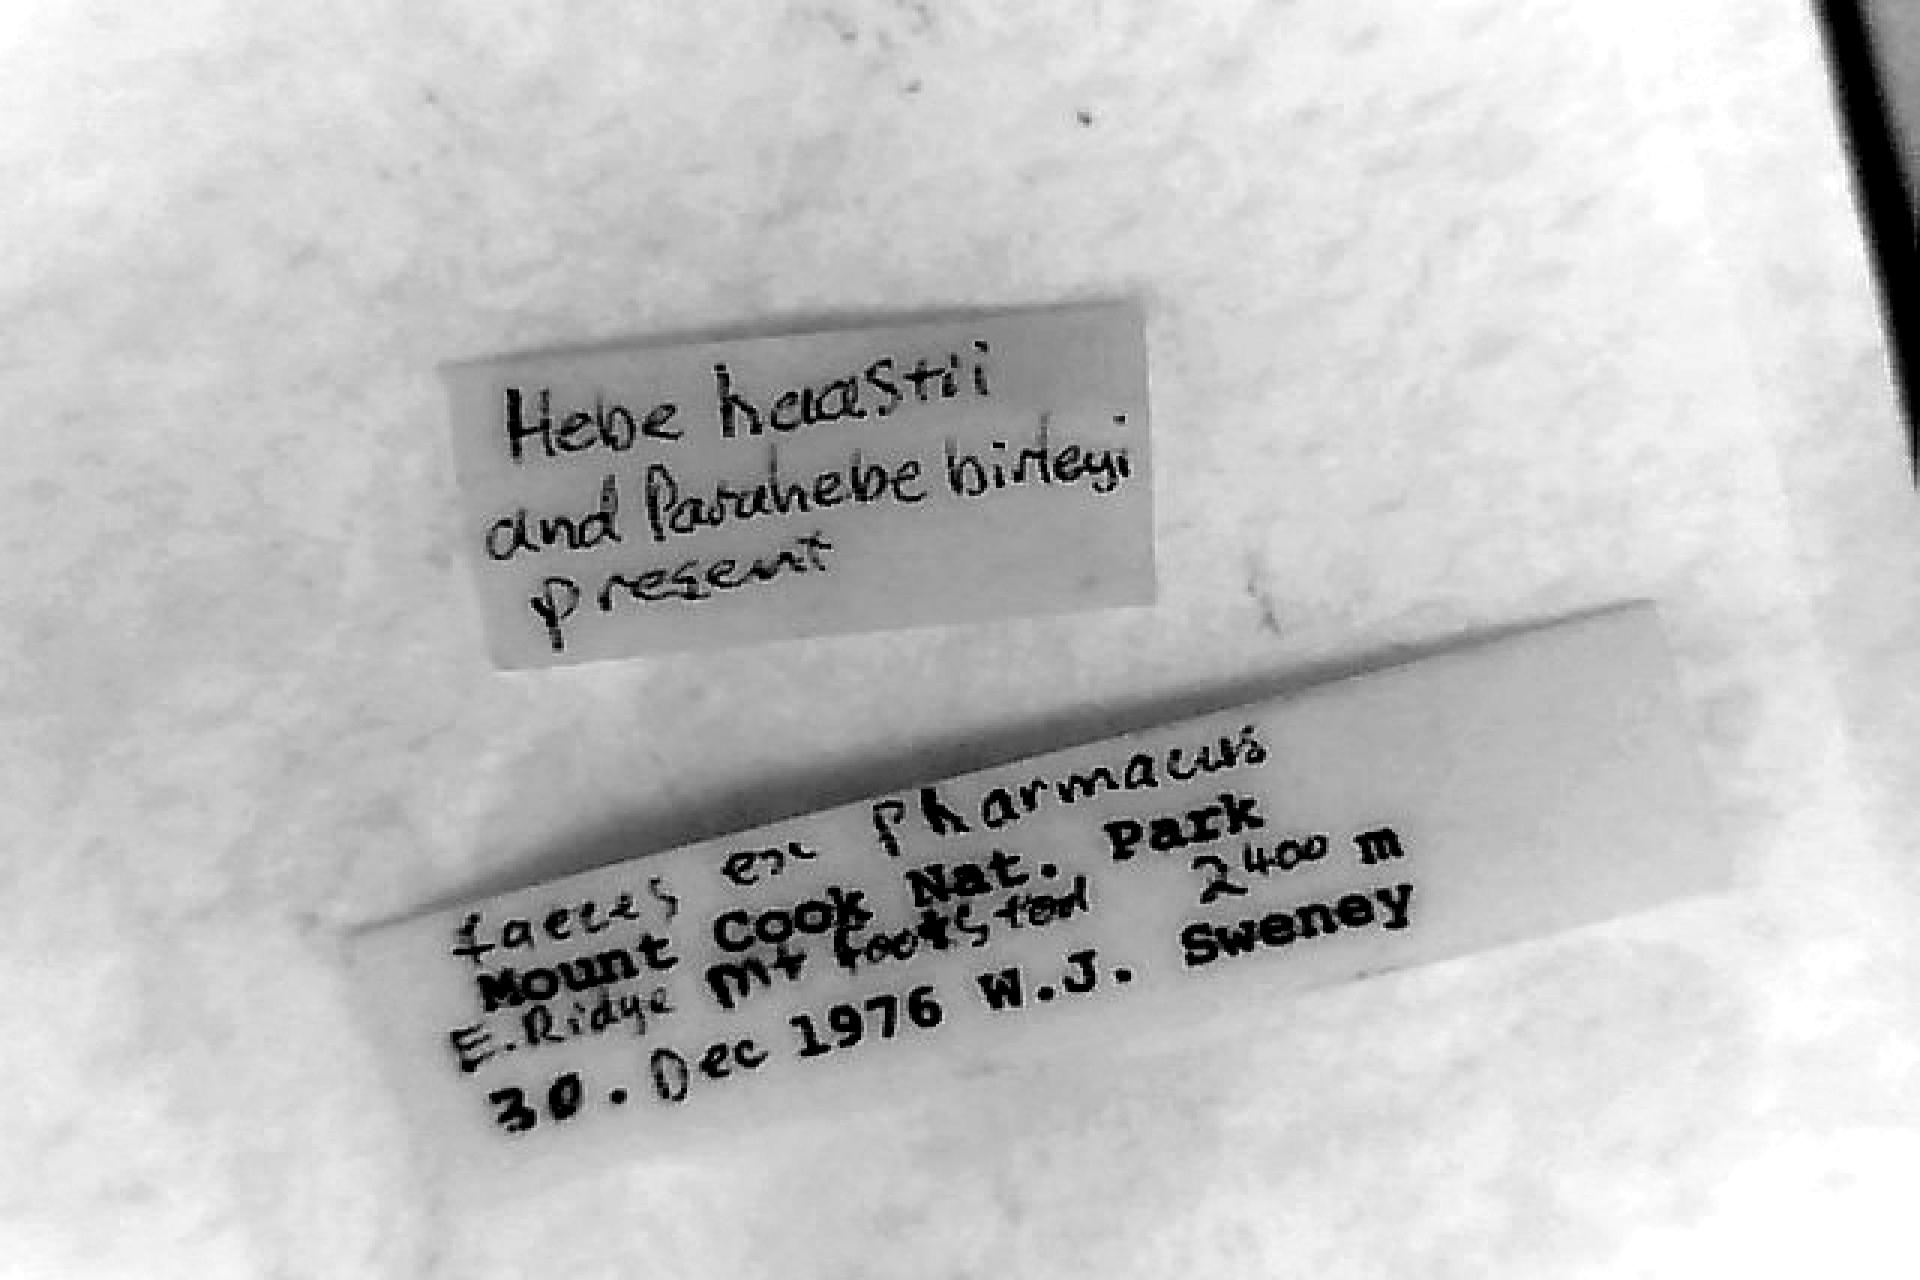 Hebe haastii
and Parahebe birleyi
present
faeces ex Pharmacus
Mount Cook Nat. Park
E. Ridge Mt Footstool 2400 m
30. Dec 1976 W.J. Sweney